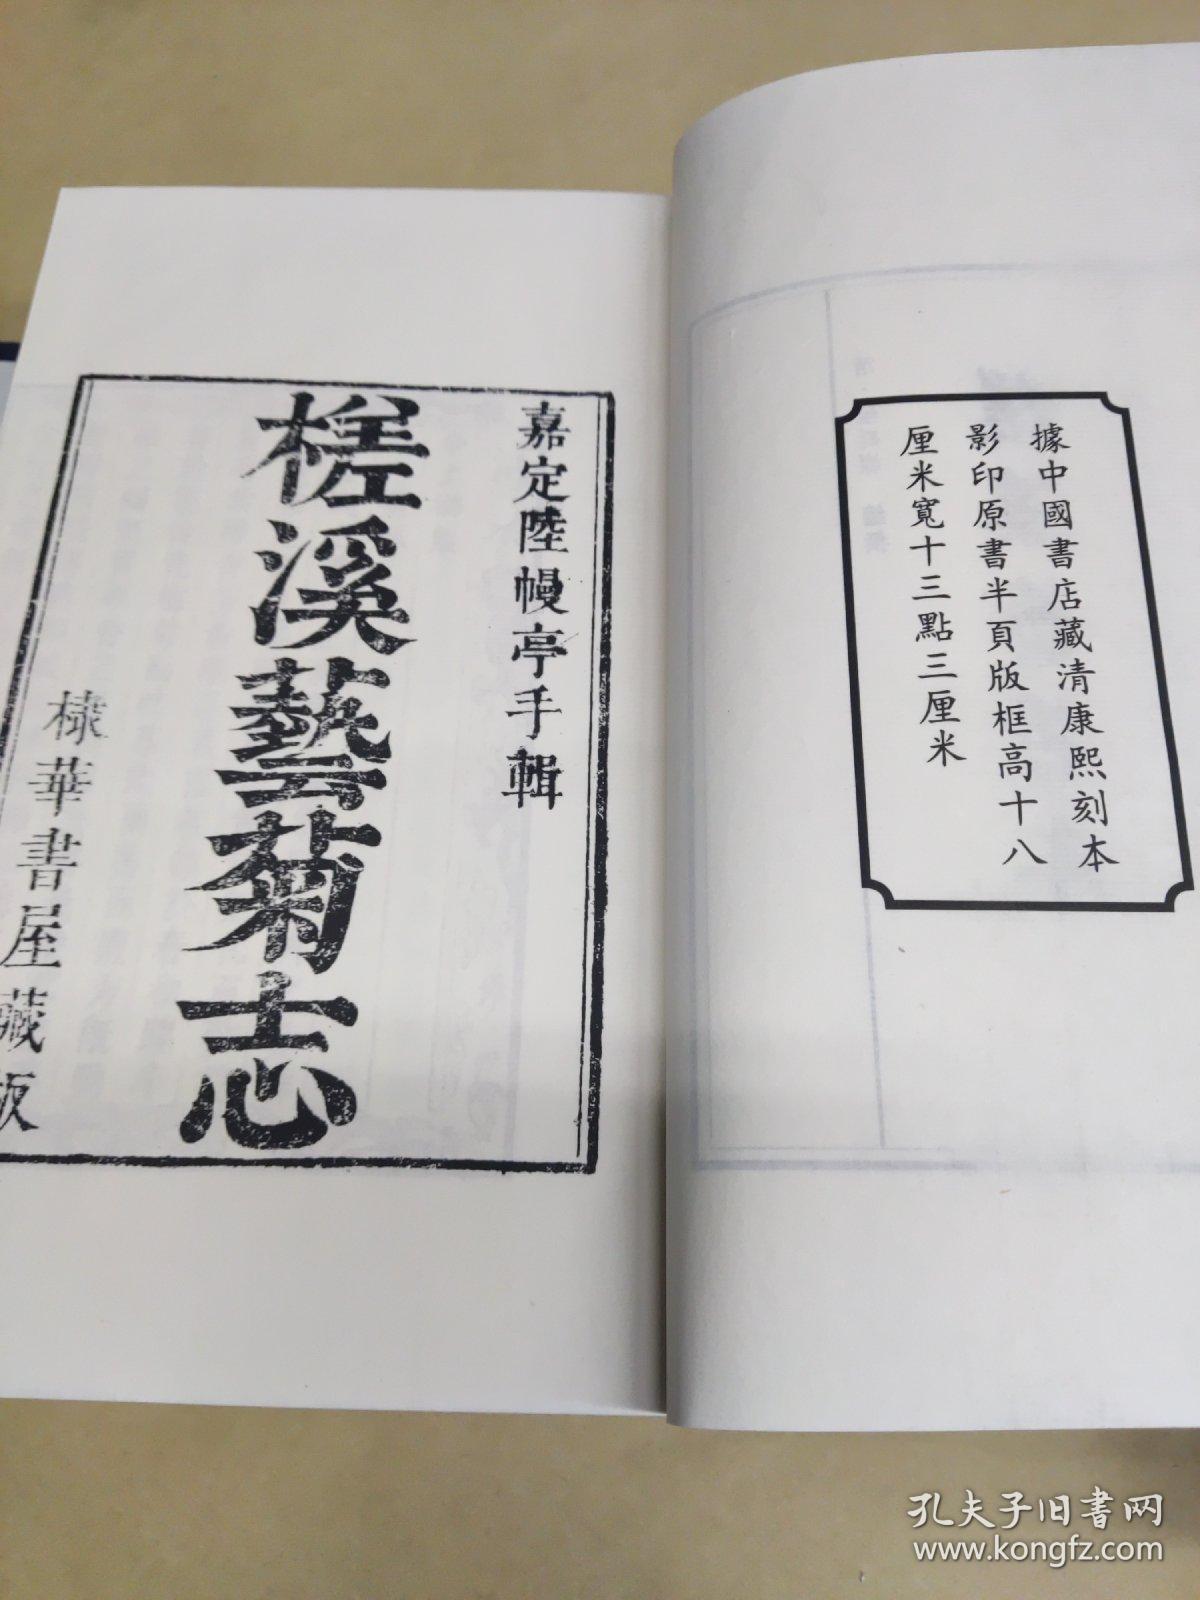 據中國書店藏清康熙刻本
影印原書半頁版框高十八
厘米寬十三點三厘米
嘉定陸幔亭手輯
槎溪藝菊志
棣華書屋藏板
孔夫子旧书网
www.kongfz.com